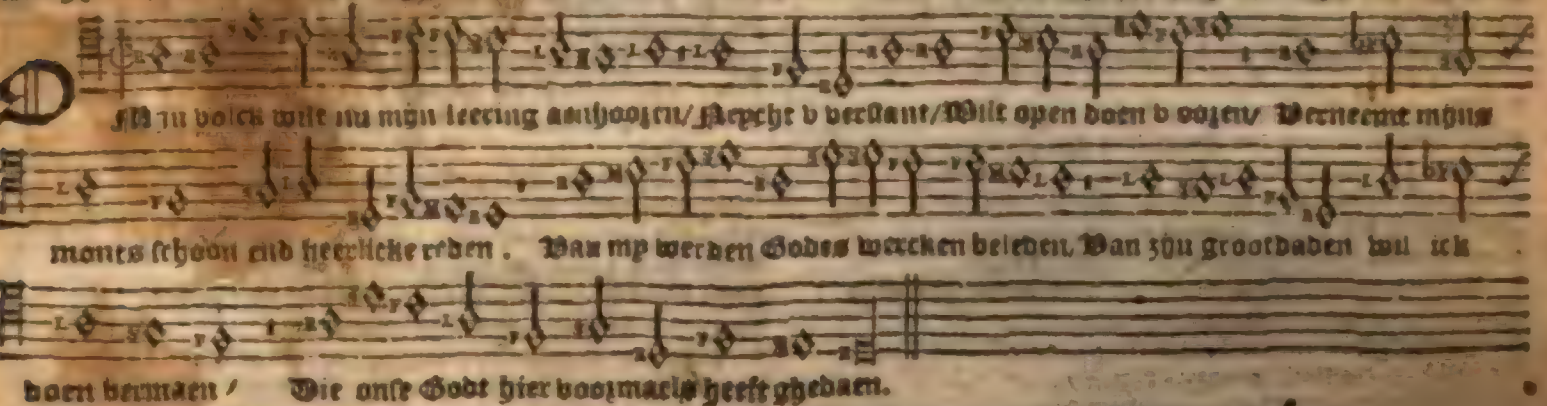 Mijn volck wilt nu mijn leering aenhooren/ Neycht v verstant/ Wilt open doen v ooren/ Verneemt mijns
monts schoon end heerlicke reden. Van my werden Godes wercken beleden, Van zijn grootdaden wil ick
doen vermaen/ Die onse Godt hier voormaels heeft ghedaen.